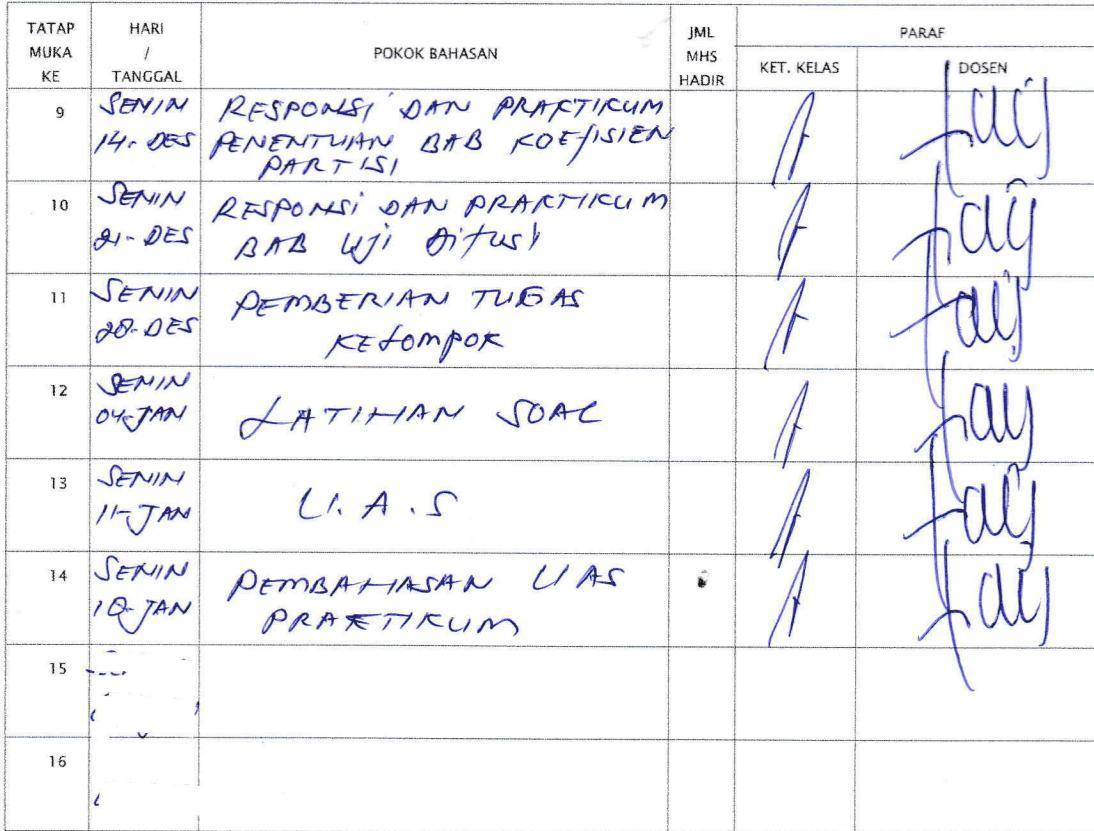 TATAP MUKA KE
HARI / TANGGAL
POKOK BAHASAN
JML MHS HADIR
PARAF
KET. KELAS
DOSEN
9
SENIN
14-DES
RESPONSI DAN PRAKTIKUM
PENENTUAN BAB KOEFISIEN
PARTISI
10
SENIN
21-DES
RESPONSI DAN PRAKTIKUM
BAB UJI DIFUSI
11
SENIN
28-DES
PEMBERIAN TUGAS
KELOMPOK
12
SENIN
04-JAN
LATIHAN SOAL
13
SENIN
11-JAN
U.A.S
14
SENIN
18-JAN
PEMBAHASAN UAS
PRAKTIKUM
15
16